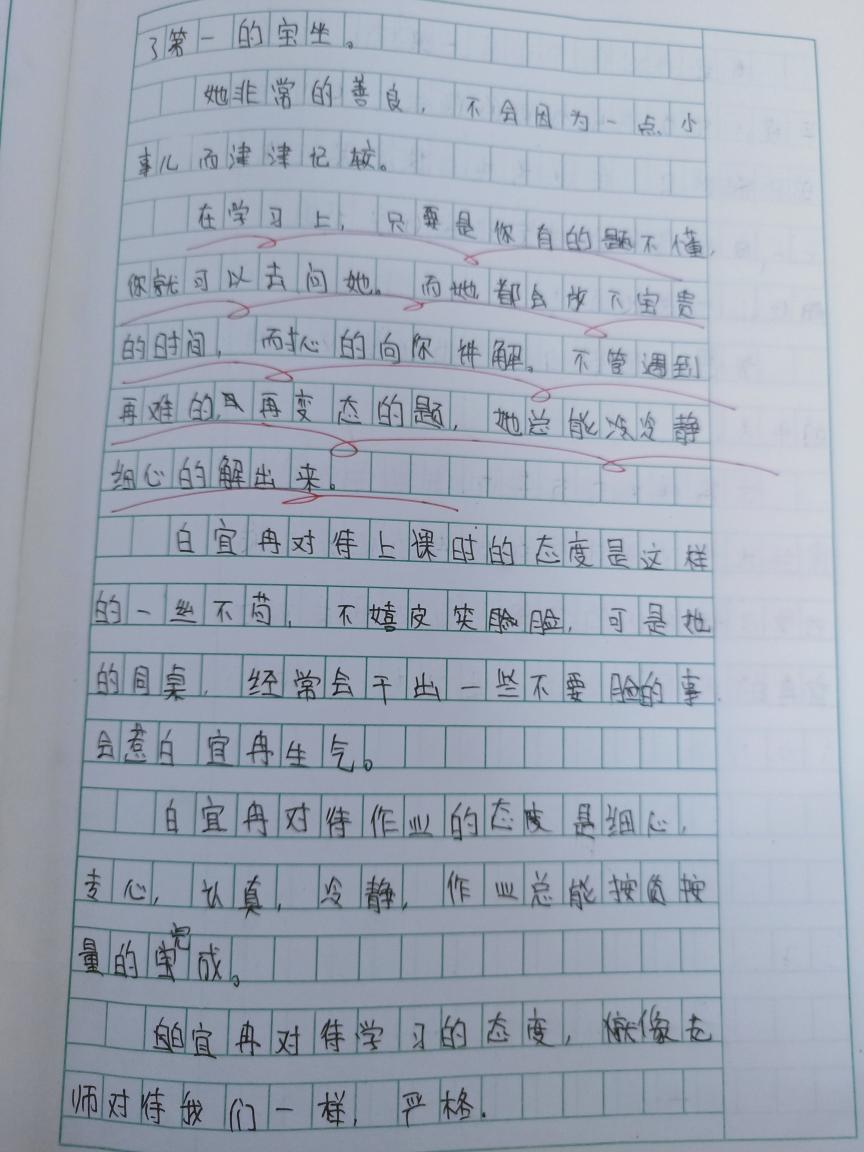 了第一的宝坐。
她非常的善良，不会因为一点小
事儿而津津记较。
在学习上，只要是你有的题不懂，
你就可以去问她。而她都会放下宝贵
的时间，耐心的向你讲解。不管遇到
再难的再变态的题，她总能冷冷静
细心的解出来。
白宜冉对待上课时的态度是这样
的一丝不苟，不嬉皮笑脸脸，可是她
的同桌，经常会干出一些不要脸的事
会惹白宜冉生气。
白宜冉对待作业的态度是细心，
专心，认真，冷静，作业总能按质按
量的完成。
白宜冉对待学习的态度，像老
师对待我们一样，严格.